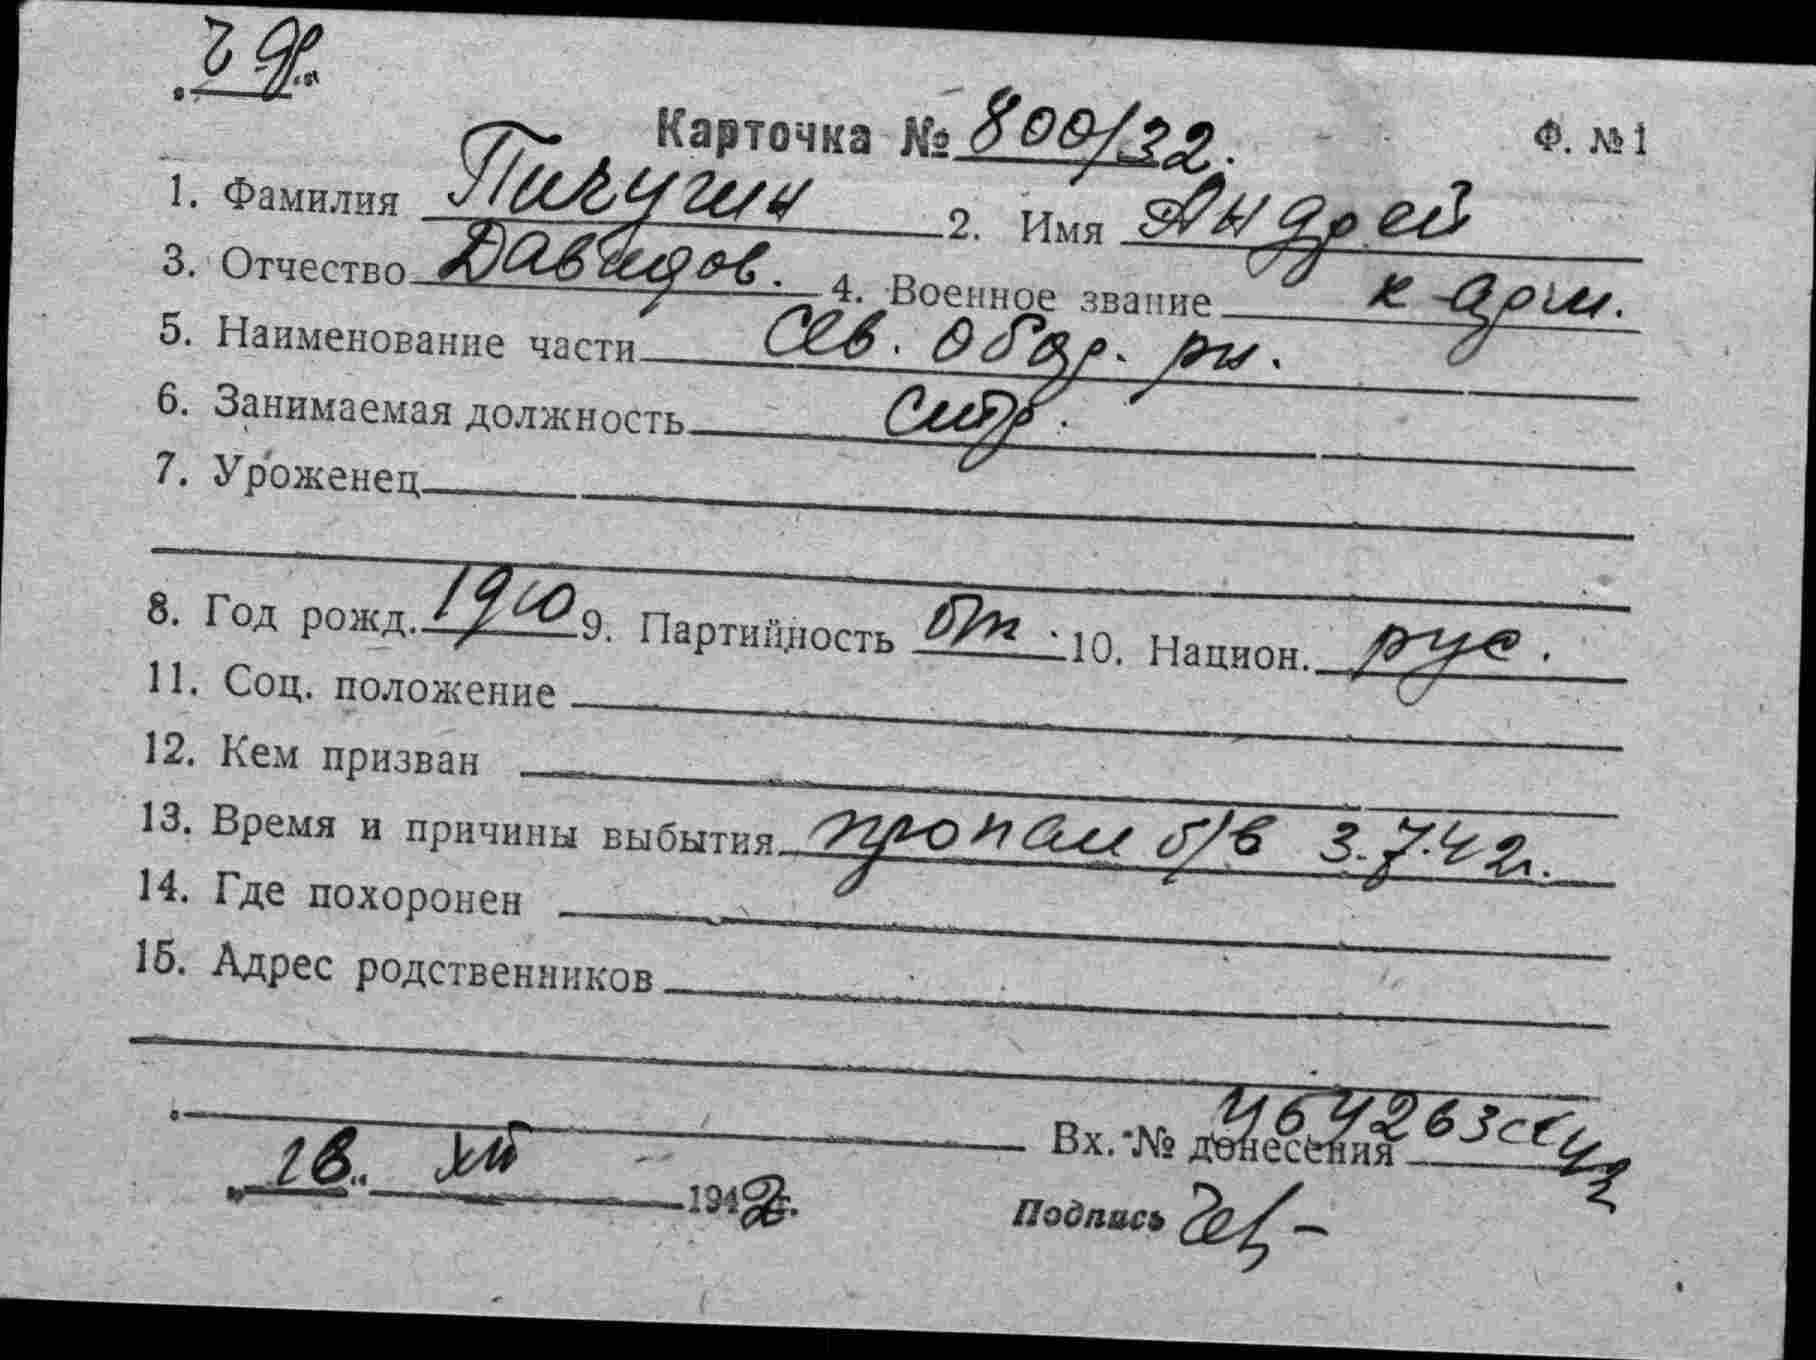 ч др.
Карточка № 800/32. Ф. № 1
1. Фамилия Пичугин 2. Имя Андрей
3. Отчество Давидов. 4. Военное звание к-арм.
5. Наименование части Сев. обор. рн.
6. Занимаемая должность
7. Уроженец
8. Год рожд. 1910 9. Партийность б/п. 10. Национ. рус.
11. Соц. положение
12. Кем призван
13. Время и причины выбытия пропал б/в 3.7.42г.
14. Где похоронен
15. Адрес родственников
Вх. № донесения
XII 1942г.
Подпись